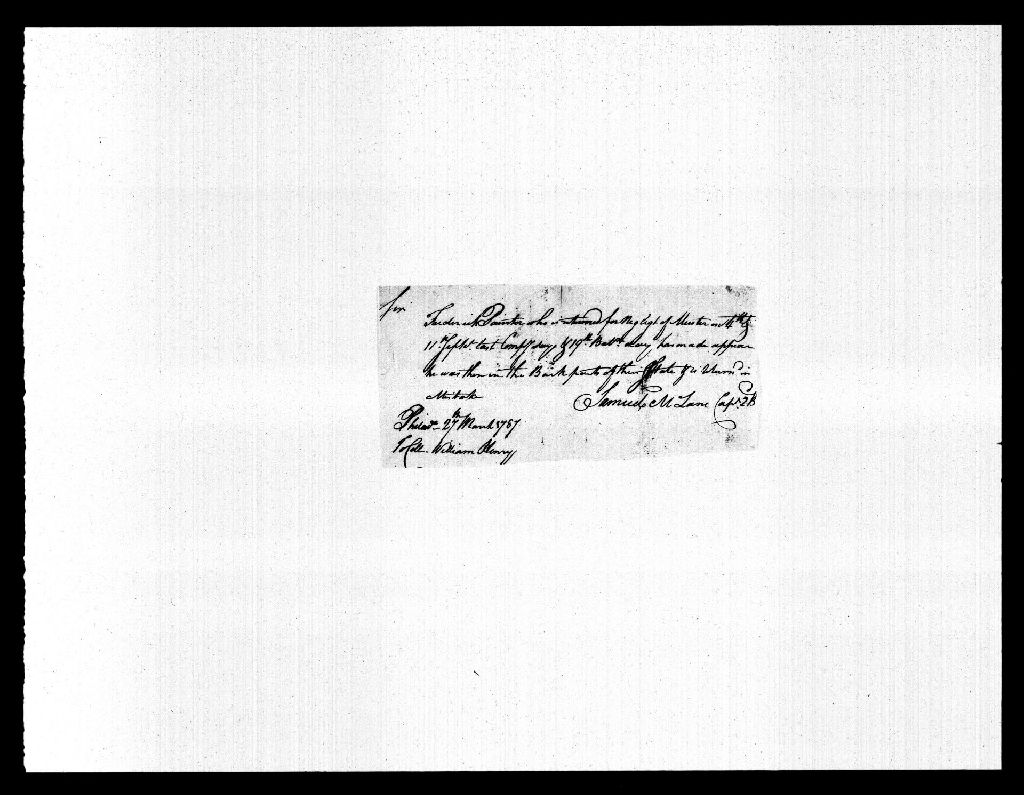 Sir
Frederick Painter who is returned for Neglect of Muster on 4th &
11th Septr last Compy 2nd Batt. has made appear
he was then in the Back parts of the State & is Return'd in
Mistake
Samuel McLane Capt. 2 B
Philad. 27th March 1787
To Coll. William Henry